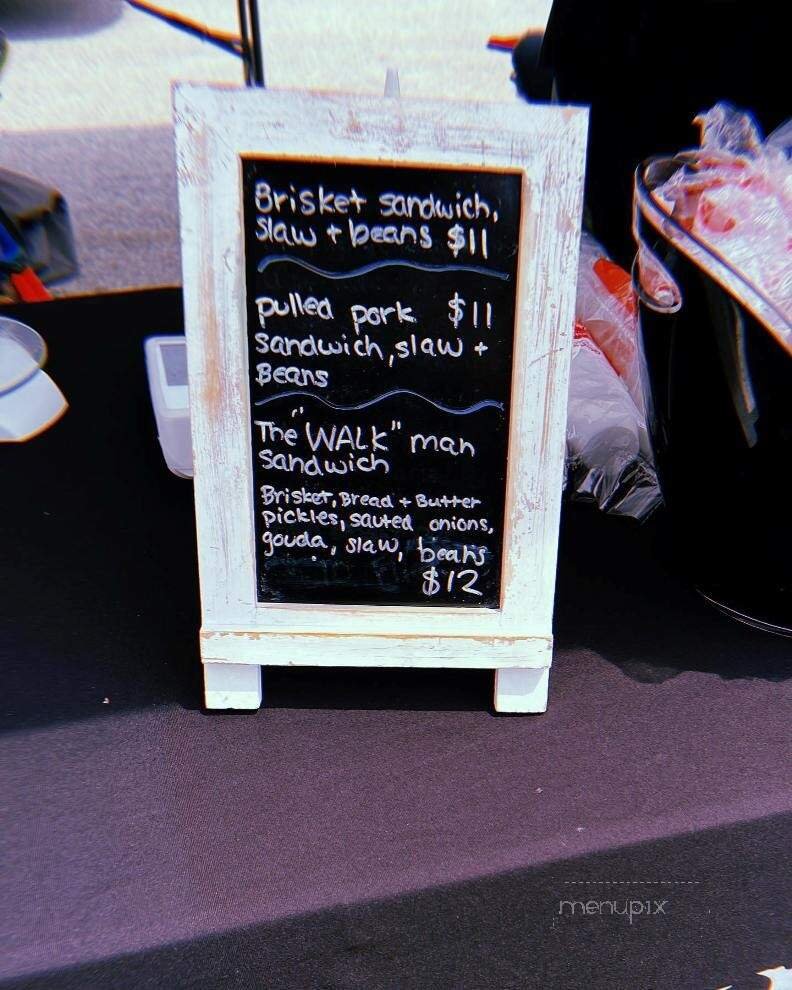 Brisket sandwich,
slaw + beans $11
pulled pork $11
sandwich, slaw +
Beans
The "WALK" man
sandwich
Brisket, Bread + Butter
pickles, sauted onions,
gouda, slaw, beans
$12
menupix